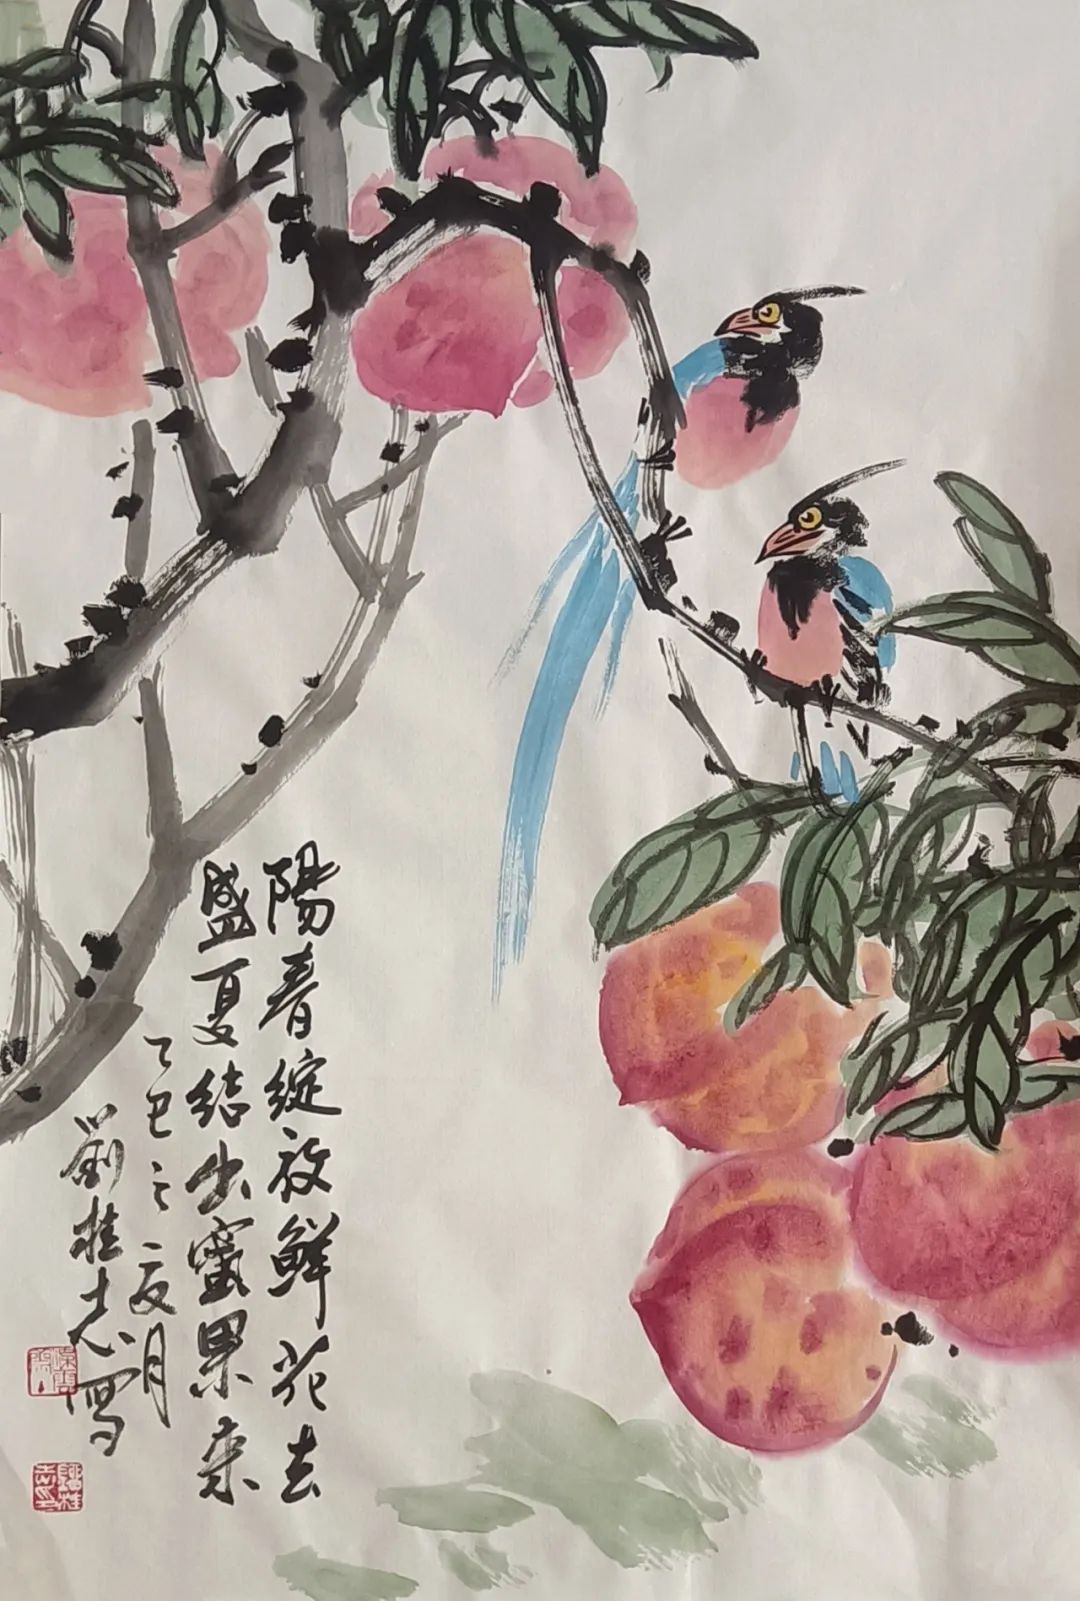 陽春綻放鮮花去
盛夏結出蜜果来
乙巳之夏月
劉桂志寫